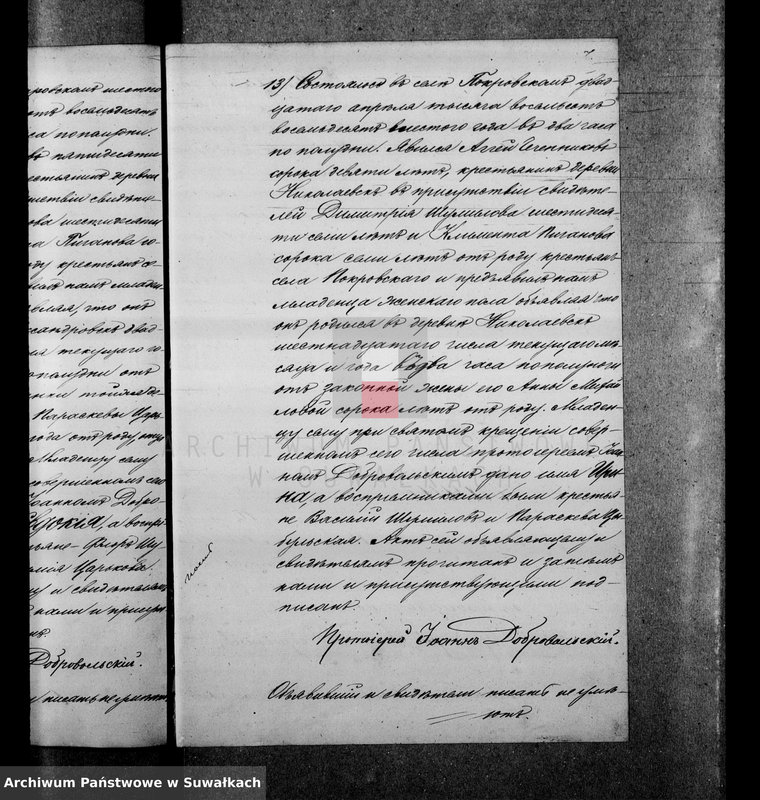 7
13/ Состоялось въ селѣ Покровскомъ двад-
цатаго апрѣля тысяча восемьсотъ
восемьдесятъ шестого года въ два часа
по полудни. Явился Аггей
сорока девяти лѣтъ, крестьянинъ деревни
Николаевскъ въ присутствіи свидѣте-
лей Димитрія Шумилова шестидеся-
ти семи лѣтъ и Климента Пиганова
сорока семи лѣтъ отъ роду крестьянъ
села Покровскаго и предъявилъ намъ
младенца женскаго пола объявляя что
онъ родился въ деревни Николаевскъ
шестнадцатаго числа текущаго мѣ-
сяца и года въ два часа пополуночи
отъ законной жены его Анны Михай-
ловой сорока лѣтъ отъ роду. Младен-
цу сему при святомъ крещеніи совер-
шенномъ сего числа протоіереемъ Іоан-
номъ Добровольскимъ дано имя Ири-
на, а воспріемниками были крестья-
не Василій и Параскева Цы-
бульская. Актъ сей объявляющему и
свидѣтелямъ прочитанъ и затѣмъ
нами и присутствующими под-
писанъ.
Протоіерей Іоаннъ Добровольскій.
Объявившій и свидѣтели писать не умѣ-
ютъ.
ровскомъ шестого
отъ восемьдесятъ
са пополудни.
въ пятидесяти
стьянинъ деревни
ова шестидесяти
са Пиганова со-
оду крестьянъ
что онъ
сандровскъ двад-
ля текущаго го-
ополудни отъ
Параскевы
года отъ роду
Младенцу сему
Іоанномъ Добро-
а воспрі-
стьяне Флоръ Шу-
и свидѣтелямъ
нами и присут-
Добровольскій.
и писать не умѣютъ
ARCHIWUM PAŃSTWOWE
W SUWAŁKACH
Archiwum Państwowe w Suwałkach